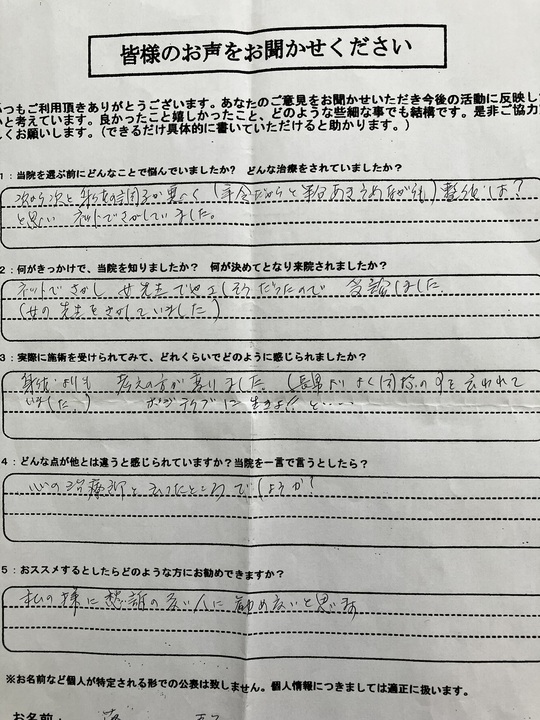 皆様のお声をお聞かせください
つもご利用頂きありがとうございます。あなたのご意見をお聞かせいただき今後の活動に反映し
いと考えています。良かったこと嬉しかったこと、どのような些細な事でも結構です。是非ご協力
しくお願いします。(できるだけ具体的に書いていただけると助かります。)
1：当院を選ぶ前にどんなことで悩んでいましたか？　どんな治療をされていましたか？
次から次と身体の調子が悪く(年令だからと半分あきらめながら)整体は？
と思い ネットでさがしていました。
2：何がきっかけで、当院を知りましたか？　何が決めてとなり来院されましたか？
ネットでさがし 女先生でやさしそうだったので 受診しました。
(女の先生をさがしていました)
3：実際に施術を受けられてみて、どれくらいでどのように感じられましたか？
身体よりも 考えの方が変りました。(長男より よく同様の事を言われて
いました。) ポジティブに生きよ!! と……
4：どんな点が他とは違うと感じられていますか？当院を一言で言うとしたら？
心の治療師と云ったところでしょうか？
5：おススメするとしたらどのような方にお勧めできますか？
私の様に愁訴の多い人に勧めたいと思います
※お名前など個人が特定される形での公表は致しません。個人情報につきましては適正に扱います。
お名前：